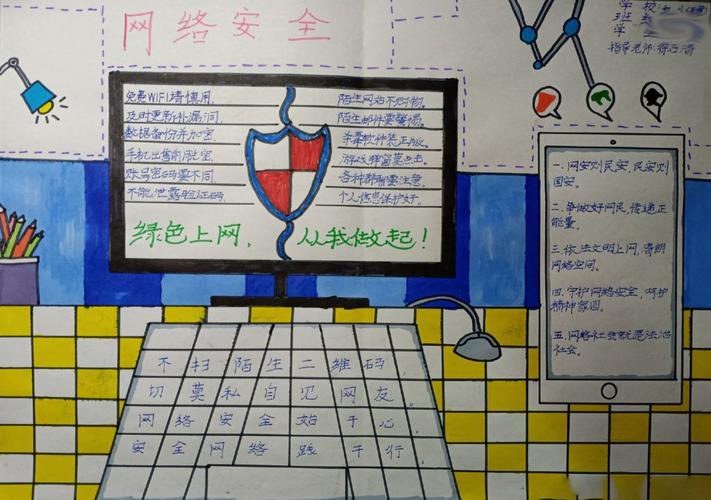 网络安全
学校:
班
学
指导老师:
免费WIFI请慎用,
及时更新补漏洞,
数据备份并加密,
手机出售前
账号密码要不同,
不能泄露验证码
陌生网站不购物。
陌生邮件要警惕。
杀毒软件装正版。
游戏弹窗莫点击。
各种群聊要注意。
个人信息保护好。
绿色上网,从我做起!
一、网安则民安,民安则
国安。
二、争做好网民,传递正
能量。
三、依法文明上网,清朗
网络空间。
四、守护网络安全,呵护
精神家园。
五、网络社会就是法治
社会。
不扫陌生二维码,
切莫私自见网友。
网络安全始于心,
安全网络践于行。